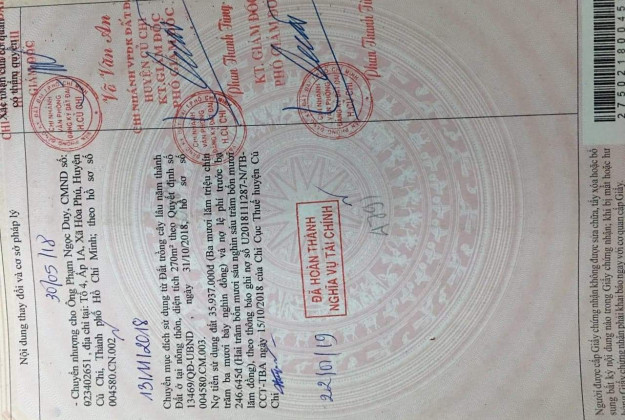 Nội dung thay đổi và cơ sở pháp lý
Xác nhận của cơ quan
có thẩm quyền
30/05/18
- Chuyển nhượng cho Ông Phạm Ngọc Duy, CMND số:
023402651, địa chỉ tại: Tổ 4, Ấp 1A, Xã Hòa Phú, Huyện
Củ Chi, Thành phố Hồ Chí Minh; theo hồ sơ số
004580.CN.002
GIÁM ĐỐC
Võ Văn An
13/11/2018
Chuyển mục đích sử dụng từ Đất trồng cây lâu năm thành
Đất ở tại nông thôn, diện tích 270m² theo Quyết định số
13469/QĐ-UBND ngày 31/10/2018, hồ sơ số
004580.CM.003.
Nợ tiền sử dụng đất 35.937.000đ (Ba mươi lăm triệu chín
trăm ba mươi bảy nghìn đồng) và nợ lệ phí trước bạ
246.645đ (Hai trăm bốn mươi sáu nghìn sáu trăm bốn mươi
lăm đồng), theo thông báo ghi nợ số U2018111287-N/TB-
CCT-TBA ngày 15/10/2018 của Chi Cục Thuế huyện Củ
Chi
CHI NHÁNH VPĐK ĐẤT ĐAI
HUYỆN CỦ CHI
KT. GIÁM ĐỐC
PHÓ GIÁM ĐỐC
Phan Thanh Tùng
22/01/19
ĐÃ HOÀN THÀNH
NGHĨA VỤ TÀI CHÍNH
KT. GIÁM ĐỐC
PHÓ GIÁM ĐỐC
Phan Thanh Tùng
CHI NHÁNH
VĂN PHÒNG
ĐĂNG KÝ ĐẤT ĐAI
H.CỦ CHI
Người được cấp Giấy chứng nhận không được sửa chữa, tẩy xóa hoặc bổ
sung bất kỳ nội dung nào trong Giấy chứng nhận; khi bị mất hoặc hư
hỏng Giấy chứng nhận phải khai báo ngay với cơ quan cấp Giấy.
2750218004